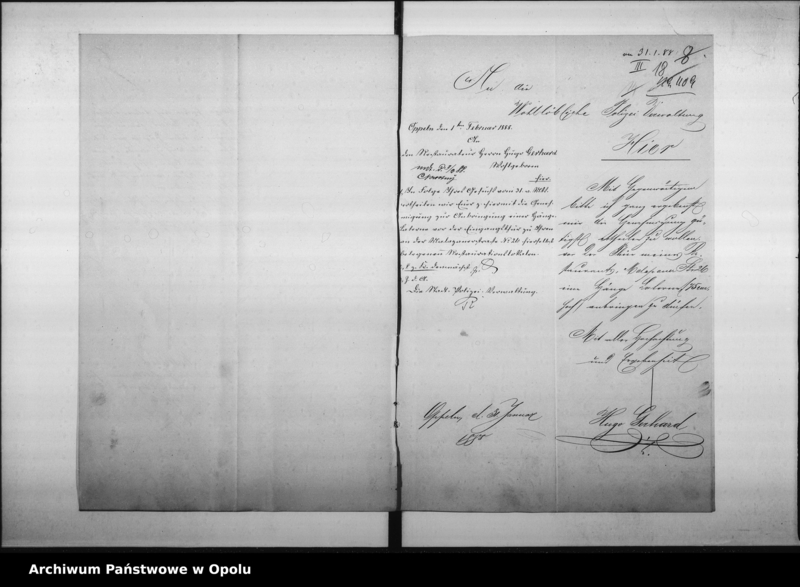 31.1.88
8
III 18
An die
Wohllöbliche Polizei Verwaltung
Hier
Oppeln den 1ten Februar 1888.
An
den Restaurateur Herrn Hugo Gerhard
Wohlgeboren
hier.
In Folge Ihres Gesuchs vom 31. v. Mts.
ertheilen wir hiermit die Geneh-
migung zur Anbringung einer Hänge-
Laterne vor der Eingangsthür zu Ihrem
an der Malapanerstraße No 26 hierselbst
belegenen Restaurationslokalen.
demnächst
Die Stadt-Polizei-Verwaltung.
Mit Gegenwärtigem
bitte ich ganz ergebenst
mir die Genehmigung gü-
tigst ertheilen zu wollen
vor der Thür meines Re-
staurants, Malapaner Str 26
eine Hänge Laterne
anbringen zu dürfen.
Mit aller Hochachtung
und Ergebenheit
Oppeln, d. Januar
1888
Hugo Gerhard
Archiwum Państwowe w Opolu